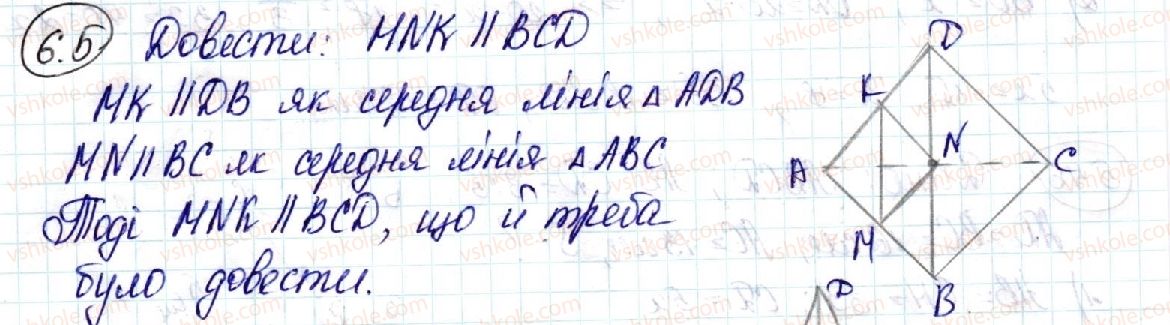 6.5 Довести: MNK || BCD
MK || DB як середня лінія △ ADB
MN || BC як середня лінія △ ABC
Тоді MNK || BCD, що й треба
було довести.
D
K
N
A
C
M
B
D